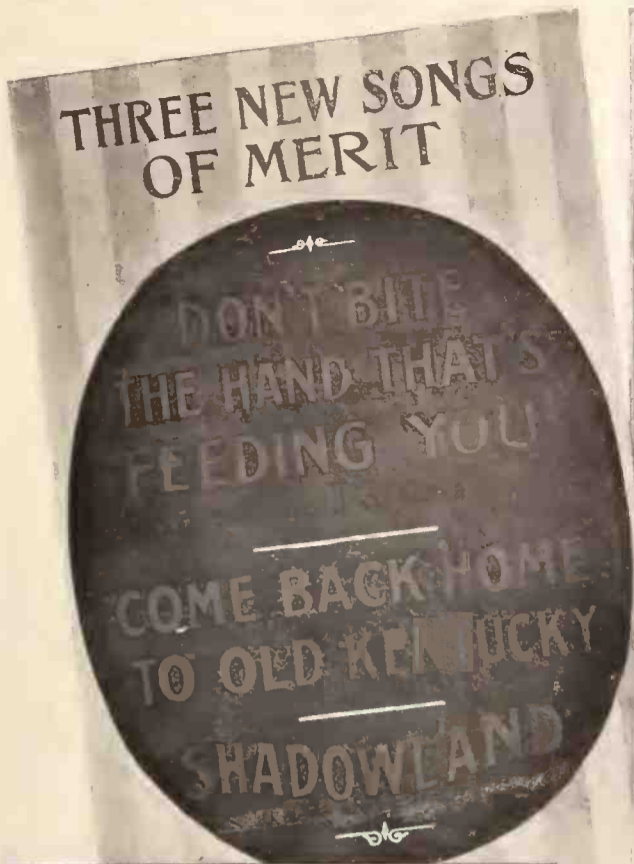 THREE NEW SONGS
OF MERIT
"DON'T BITE
THE HAND THAT'S
FEEDING YOU"
"COME BACK HOME
TO OLD KENTUCKY
SHADOWLAND